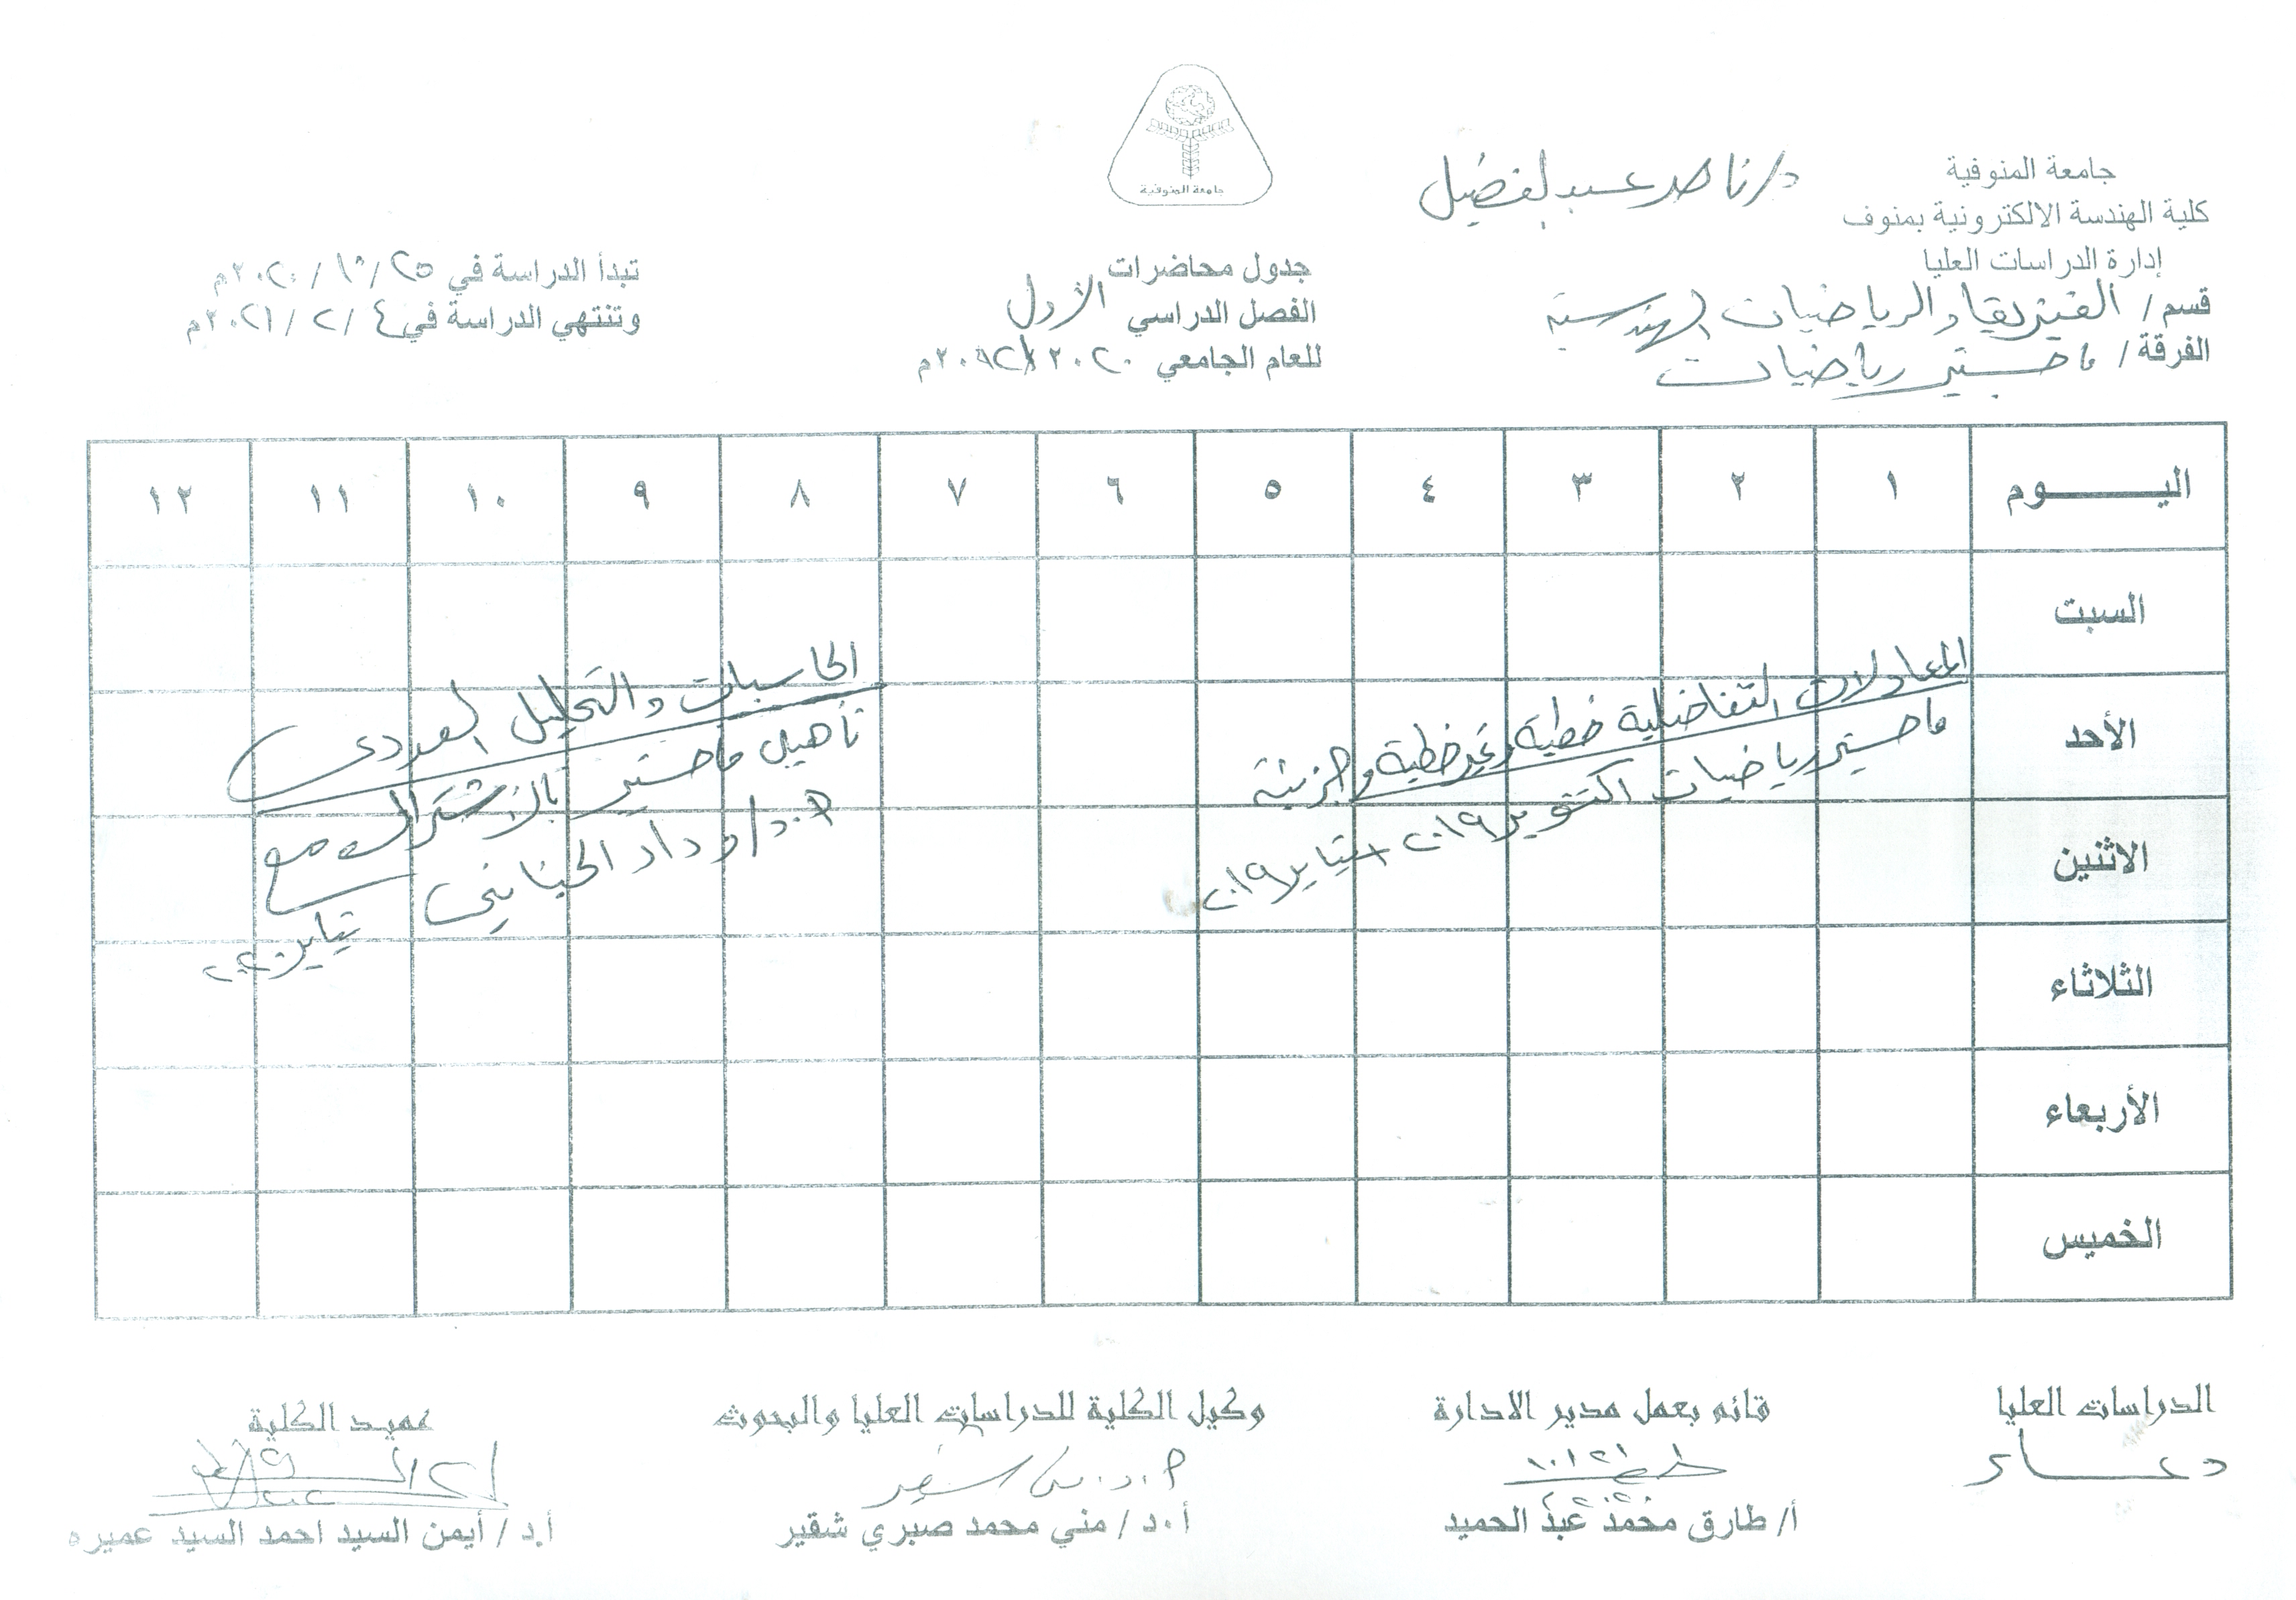 جامعة المنوفية
جامعة المنوفية
كلية الهندسة الالكترونية بمنوف
إدارة الدراسات العليا
قسم / الفيزيقا والرياضيات الهندسية
الفرقة / ماجستير رياضيات
د/ ناصر عبدالفضيل
جدول محاضرات
الفصل الدراسي الأول
للعام الجامعي ٢٠٢٠
تبدأ الدراسة في ٢٥ / ١٠ / ٢٠٢٠م
وتنتهي الدراسة في ٤ / ٢ / ٢٠٢١م
اليـــــوم ١ ٢ ٣ ٤ ٥ ٦ ٧ ٨ ٩ ١٠ ١١ ١٢
السبت
الأحد
الاثنين
الثلاثاء
الأربعاء
الخميس
المعادلات التفاضلية خطية وغير خطية وجزيئة
ماجستير رياضيات اكتوبر ٢٠١٩ + يناير ٢٠١٩
الحاسبات والتحليل العددى
تأهيلى ماجستير بالاشتراك مع
أ.د/ وداد الحناينى
يناير ٢٠٢٠
الدراسات العليا
دعاء
قائم بعمل مدير الادارة
أ/ طارق محمد عبد الحميد
وكيل الكلية للدراسات العليا والبحوث
أ.د / مني محمد صبري شقير
عميد الكلية
أ.د / أيمن السيد احمد السيد عميره